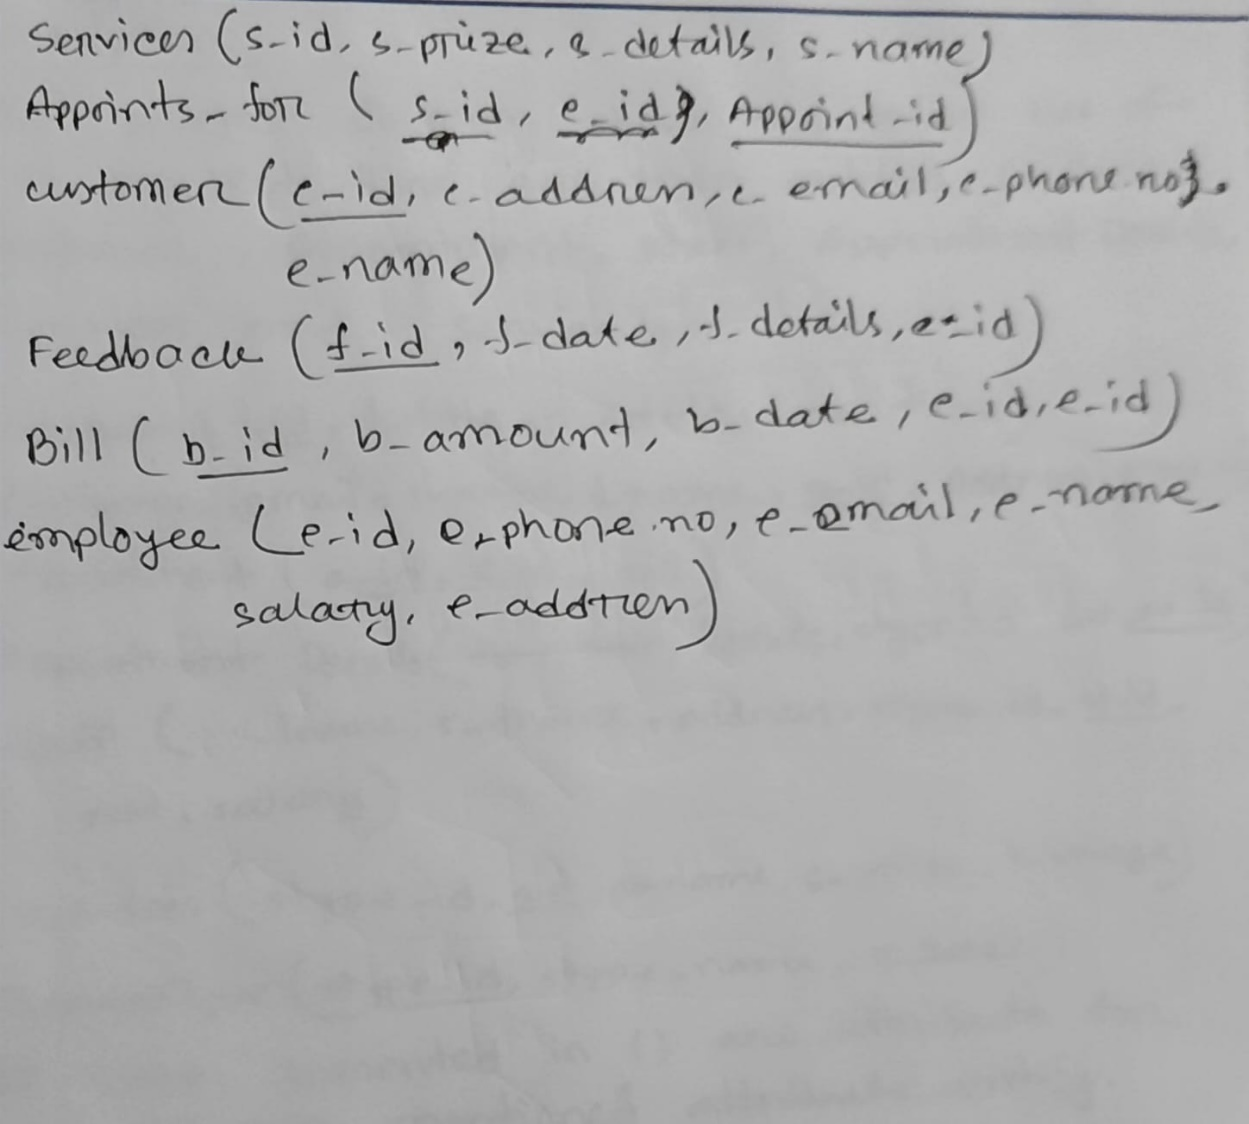 Services (s-id, s-prize, s-details, s-name)
Appoints-for (s-id, e-id}, Appoint-id)
customer (c-id, c-address, c-email, c-phone no}.
c-name)
Feedback (f-id, f-date, f-details, c-id)
Bill (b-id, b-amount, b-date, c-id, e-id)
employee (e-id, e-phone no, e-email, e-name,
salary, e-address)